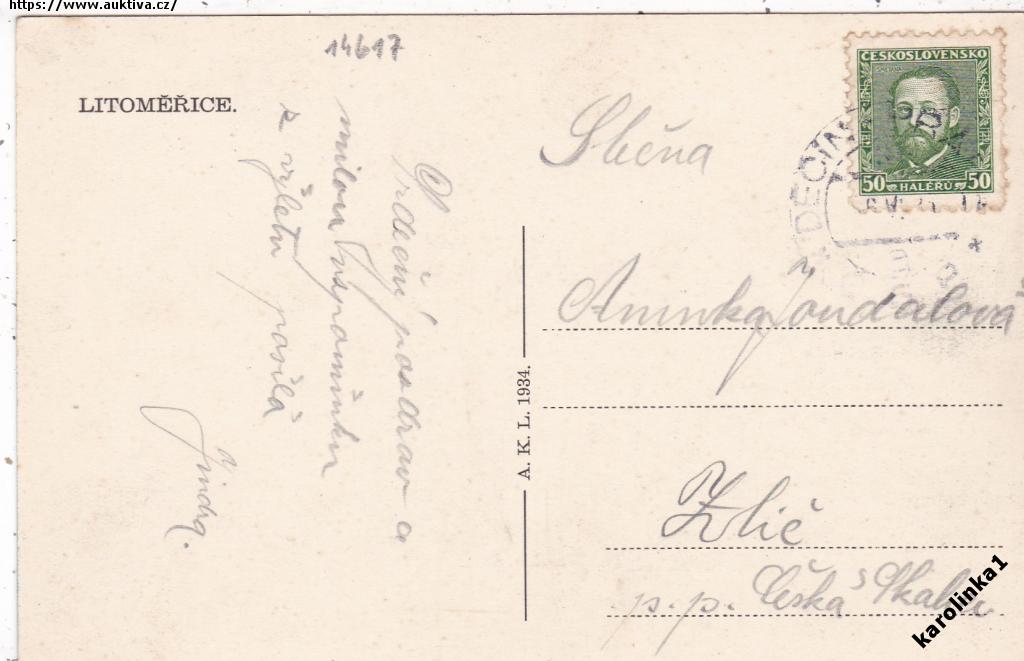 https://www.auktiva.cz/
14617
LITOMĚŘICE.
Srdečný pozdrav a
milou vzpomínku
z výletu posílá
Jindra.
A. K. L. 1934.
ČESKOSLOVENSKO
50 HALÉŘŮ 50
DĚČÍN
Slečna
Aninka Joudalová
Zlíč
p.p. Česká Skalice
karolinka1